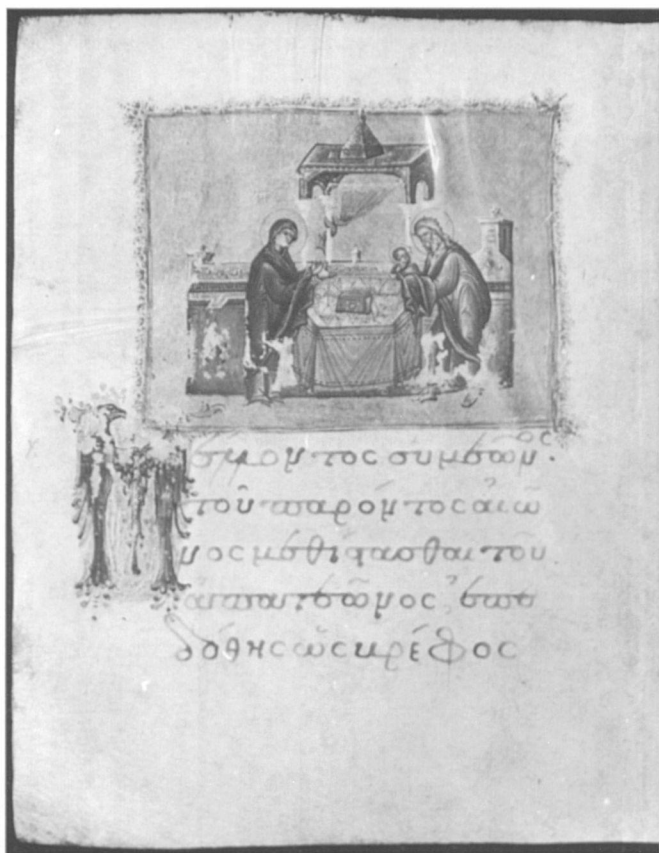 Μέλλοντος συμεῶνος.
τοῦ παρόντος αἰῶ
νος μεθίστασθαι τοῦ
ἀπατεῶνος, ἐπε
δόθης ὡς βρέφος